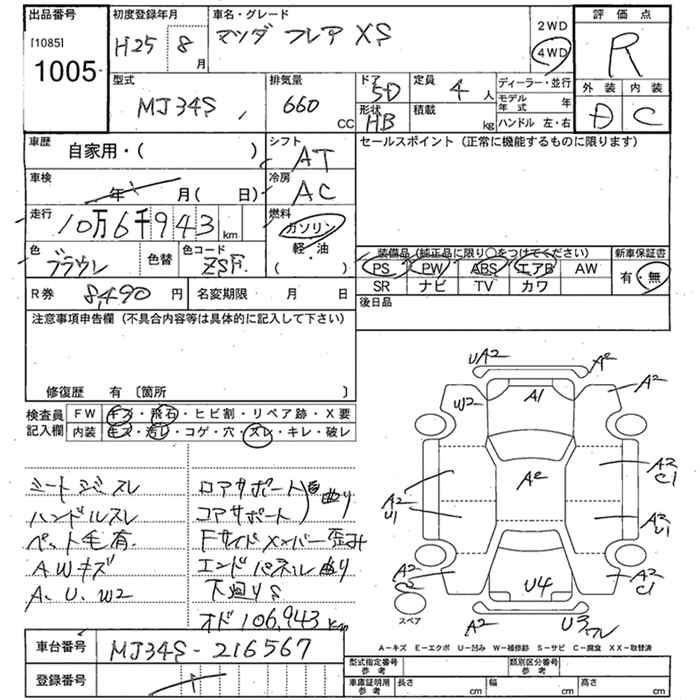 出品番号
[1085]
1005
初度登録年月
H25 8月
車名・グレード
マツダ フレア XS
2WD
4WD
評価点
R
外装 内装
D C
型式
MJ34S
排気量
660
CC
ドア
5D
形状
HB
定員
4人
積載
kg
ディーラー・並行
モデル年式 年
ハンドル 左・右
車歴
自家用・( )
シフト
AT
車検
年 月( 日)
冷房
AC
走行
10万6千943 km
燃料
ガソリン
軽・油
( )
色
ブラウン
色替
色コード
R券
8,490円
名変期限 月 日
セールスポイント (正常に機能するものに限ります)
装備品 (純正品に限り○をつけてください)
PS PW ABS エアB AW
SR ナビ TV カワ
新車保証書
有・無
後日品
注意事項申告欄 (不具合内容等は具体的に記入して下さい)
修復歴 有 〔箇所 〕
検査員記入欄
FW キズ・飛石・ヒビ割・リペア跡・X要
内装 キズ・汚レ・コゲ・穴・スレ・キレ・破レ
シートシミ スレ
ハンドルスレ
ペット毛有
AWキズ
A、U、W2
コアサポート
曲り
Fサイドメンバー歪み
エンドパネル曲り
下廻りS
オド106,943km
UA2
A2
W2
A1
A2
A2
A2
U1
A2
C1
A2
U1
A2
C2
A2
C1
U4
A2
U3
スペア
A−キズ E−エクボ U−凹み W−補修跡 S−サビ C−腐食 XX−取替済
車台番号
MJ34S-216567
登録番号
型式指定番号 参考
類別区分番号 参考
車庫証明用 参考
長さ cm
幅 cm
高さ cm